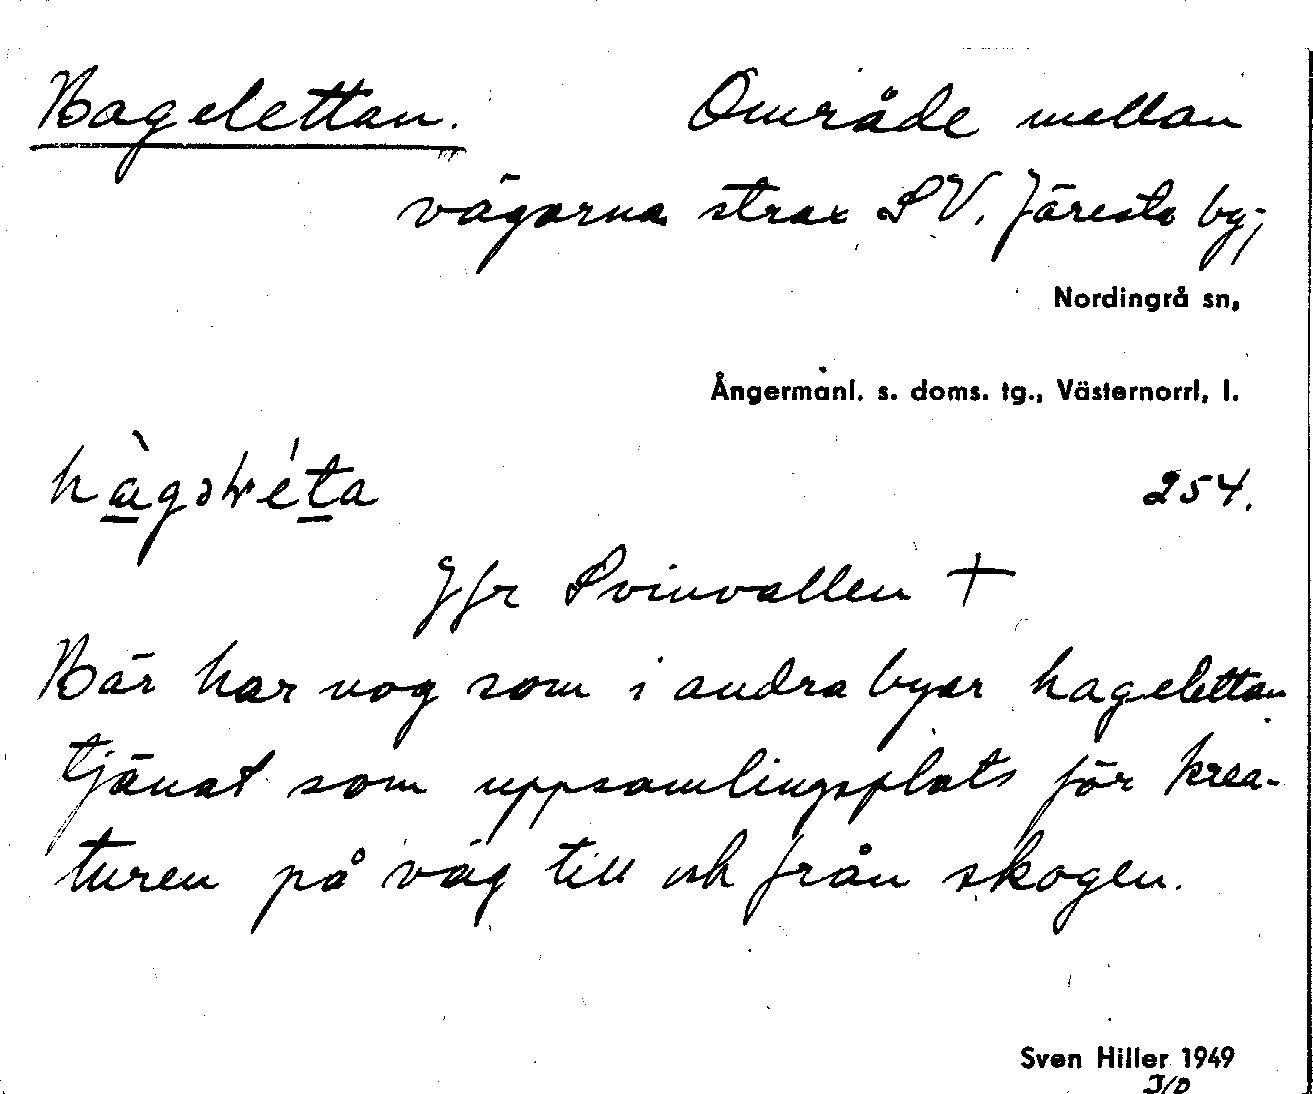 Hagelettan. Område mellan
vägarna strax SV. Järesta by;
Nordingrå sn,
Ångermanl. s. doms. tg., Västernorrl. l.
254.
Jfr Svinvallen +
Här har nog som i andra byar hagelettan
tjänat som uppsamlingsplats för krea-
turen på väg till och från skogen.
Sven Hiller 1949
I/D